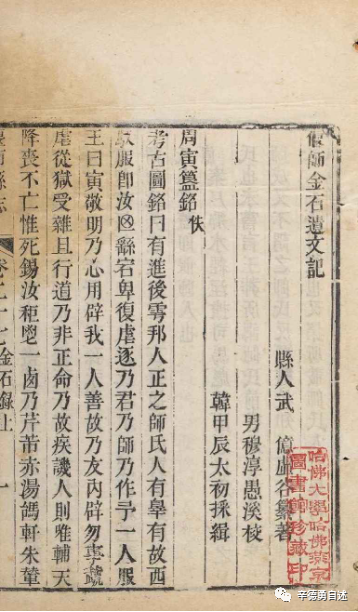 偃師金石遺文記
縣人武 億虛谷纂著
男穆淳愚溪校
韓甲辰太初採緝
周寅簋銘 佚
考古圖銘曰有進後雩邦人正之師氏人有辠有故西
服即汝 繇宕卑復虐逐乃君乃師乃作予一人服
王曰寅敬明乃心用辟我一人善故乃友内辟勿事虣
虐從獄受雜且行道乃非正命乃故疾譏人則唯輔天
降喪不亡惟死錫汝秬鬯一卤乃芹芾赤舄軒朱
偃師縣志 卷二十七 金石錄上 一
哈佛大學哈佛燕京圖書館珍藏印
辛德勇自述